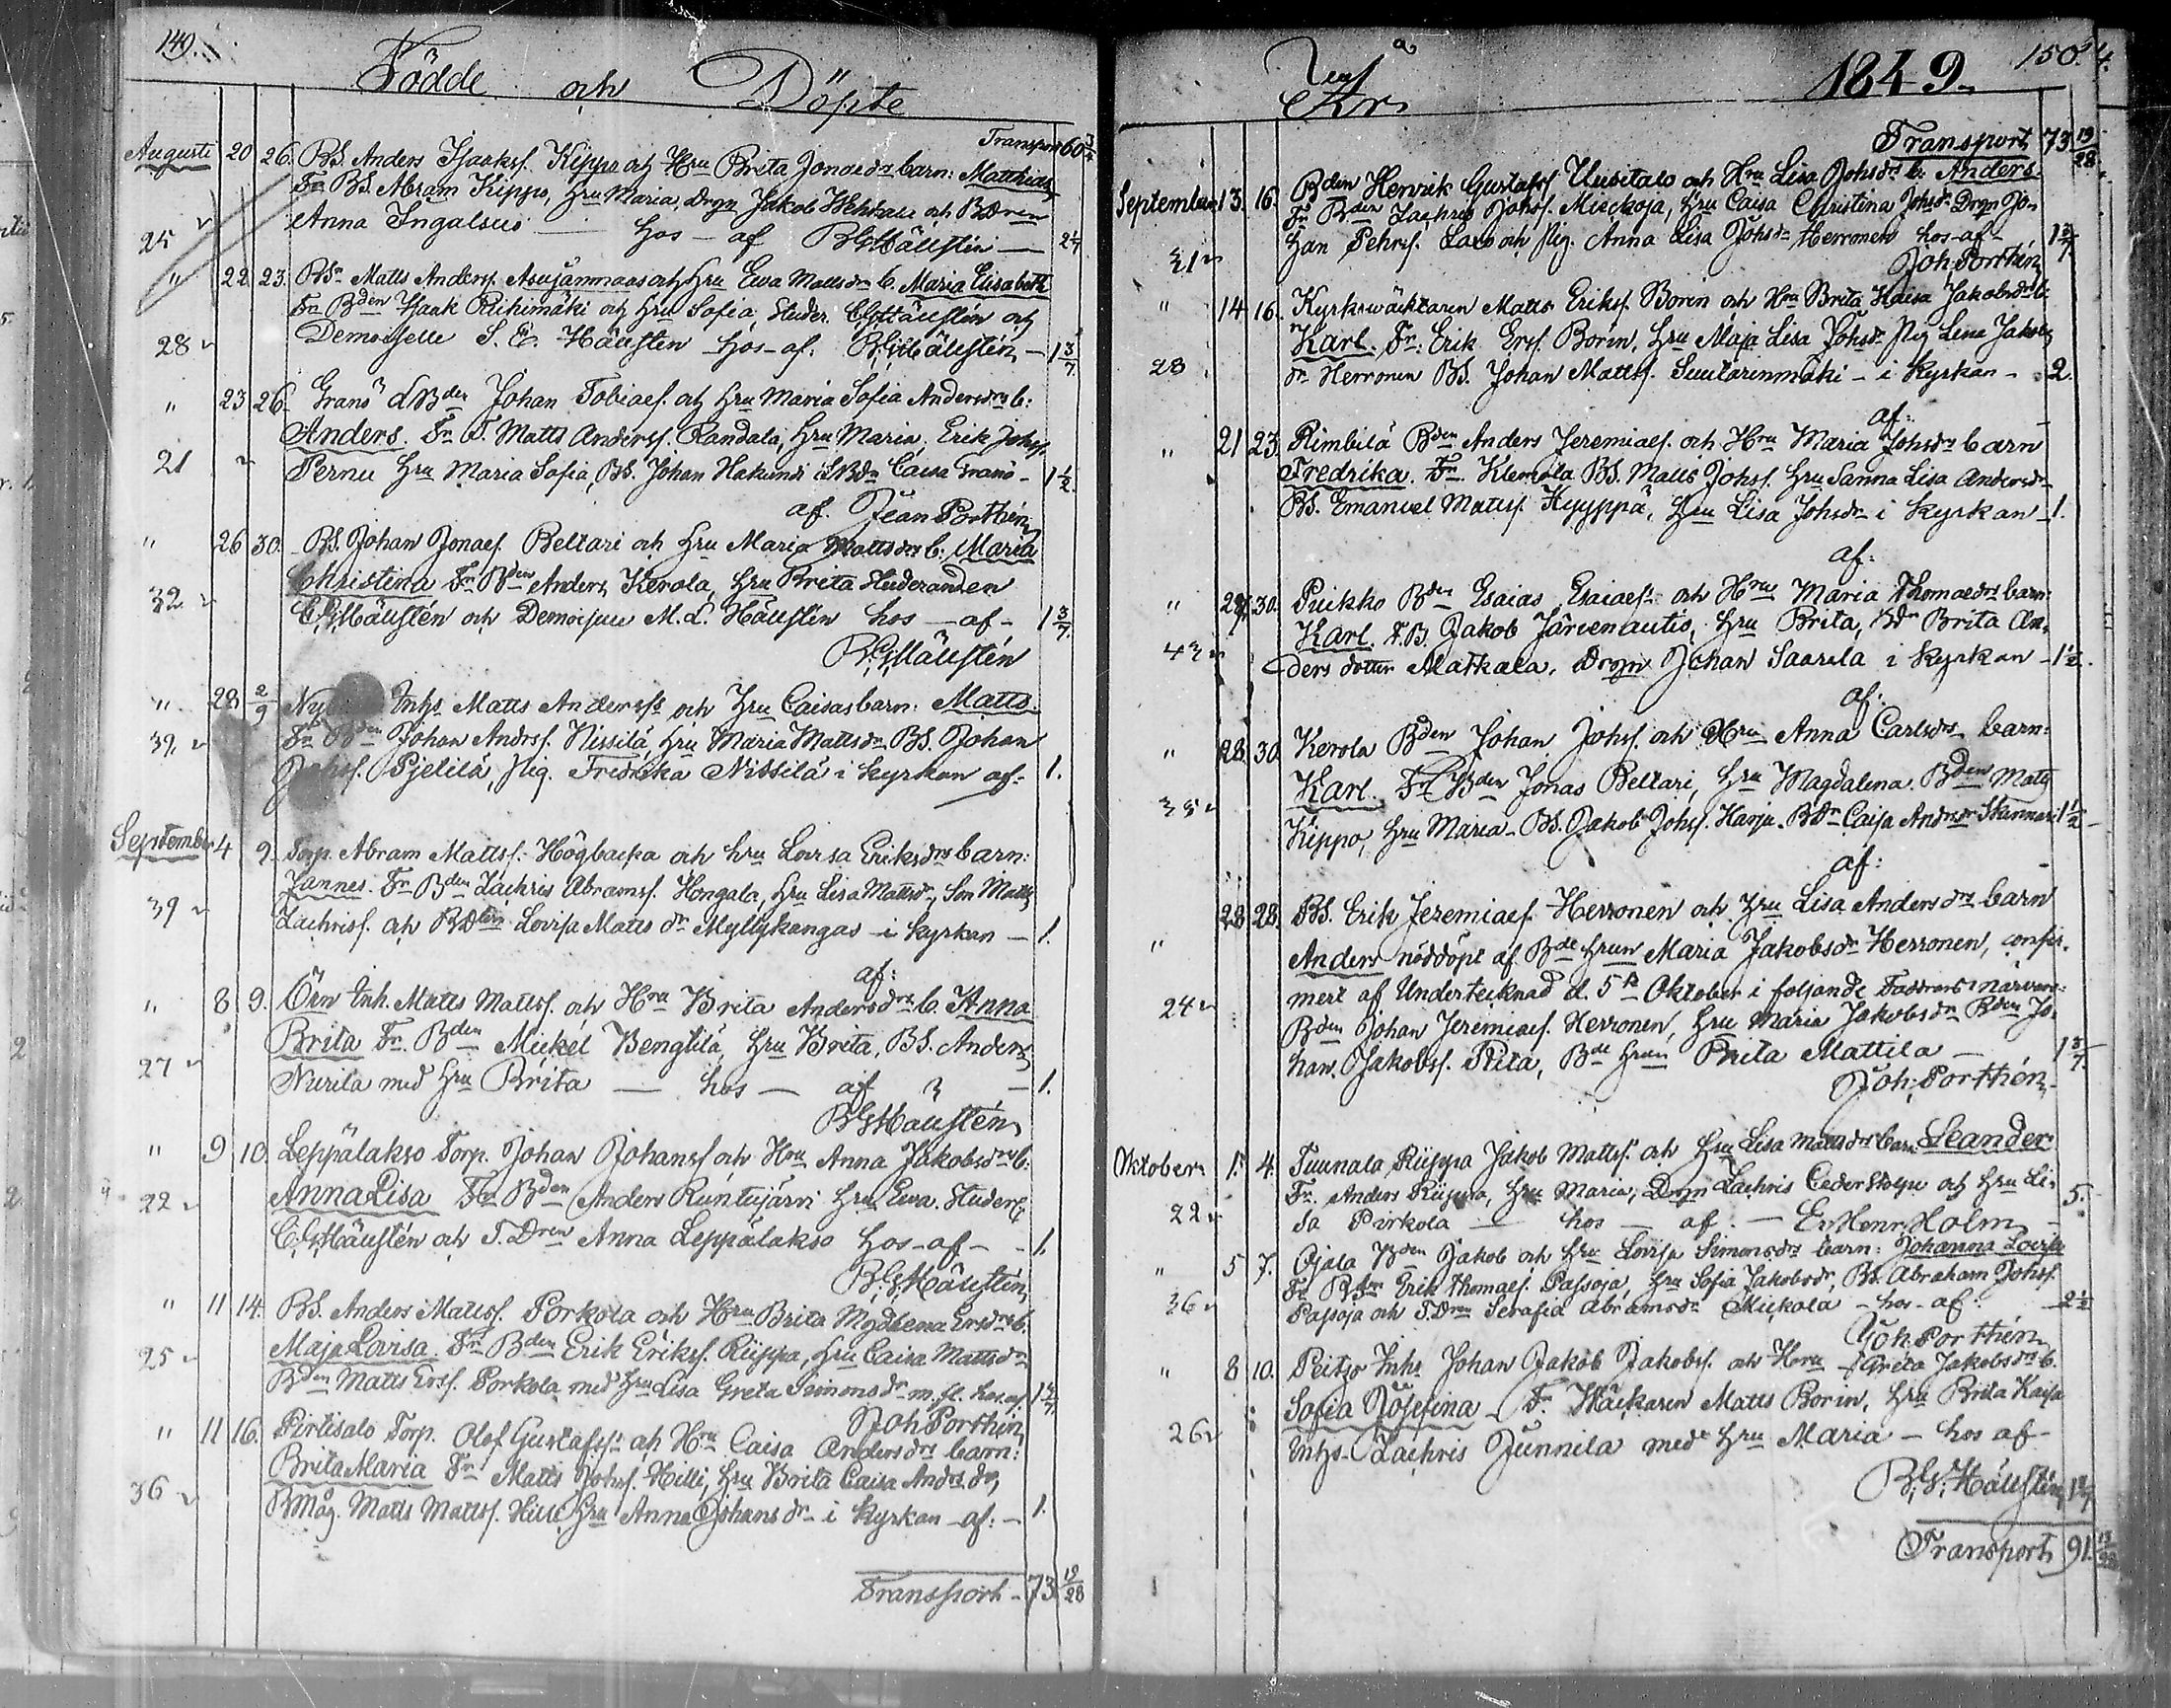 149.
Födde och Döpte
Transport 60 3/4
Augusti 20 26. BS. Anders Isaaksf. Kippo och Hru Brita Jonaedrs barn: Matthias
Fr BS. Abram Kippo, Hru Maria, Drgn Jakob Wehkala och BDren
25 Anna Ingalsuo hos - af BGHällsten 2 1/7
" 22 23. BSn Matts Anderss. Asujänmaas och Hru Ewa Mattsdrs b. Maria Elisabeth
Fr Bden Isaak Riihimäki och Hru Sofia, Studer. CGHällstén och
28 Demoiselle S. E. Hällsten hos - af: BGHällstén - 1 3/7
" 23 26. Granö Bden Johan Tobiaef. och Hru Maria Sofia Andersdrs b:
Anders. Fr T. Matts Anderss. Randala, Hru Maria. Erik Johss.
21 Pernu Hru Maria Sofia, BS. Johan Hakundi Caisa Granö - 1 1/2
af. Jean Porthén
" 26 30. BS. Johan Jonaef. Beltari och Hru Maria Mattsdrs b: Maria
Christina Fr Bden Anders Kerola, Hru Brita Studeranden
32 CGHällstén och Demoiselle M. L. Hällstén hos - af - 1 3/7
BGHällstén
" 28 2/9 Inhs Matts Anderss. och Hru Caisas barn: Matts.
39 Fr Bden Johan Andrss. Nissilä, Hru Maria Mattsdr BS. Johan
Johss. Pjelilä, Pig. Fredrika Nissilä i kyrkan af - 1.
September 4 9. Torp. Abram Mattss. Högbacka och hru Lovisa Eriksdrs barn:
Jannes. Fr Bden Zachris Abramss. Hongala, Hru Lisa Mattsdr, Son Matts
39 Zachriss. och BDtren Lovisa Matts dr Myllykangas - i kyrkan - 1.
af:
" 8 9. Örn Inh. Matts Mattss. och Hru Brita Andersdrs b. Anna
Brita Fr. Bden Mickel Bengtilä, Hru Brita, BS. Anders
27 Nurila med Hru Brita - hos - af - 1.
BGHällstén
" 9 10. Leppälakso Torp. Johan Johanss. och Hru Anna Jakobsdrs b:
22 Anna Lisa Fr Bden Anders Runtujärvi Hru Ewa. Studer
C. G. Hällstén och T. Dren Anna Leppälakso hos - af - 1.
B. G. Hällstén
" 11 14. BS. Anders Mattss. Porkola och Hru Brita Magdlena Ersdrs b.
25 Maja Lovisa. Fr Bden Erik Erikss. Riippa, Hru Caisa Mattsdr
Bden Matts Erss. Porkola med Hru Lisa Greta Simonsdr m. fl. hos. af. 1
Joh Porthén
" 11 16. Pirtisalo Torp. Olof Gustafss. och Hru Caisa Andersdrs barn:
Brita Maria Fr Matts Johss. Hilli, Hru Brita Caisa Andrs dr,
36 Bmåg. Matts Mattss. Hilli Hru Anna Johans dr i kyrkan - af: - 1.
Transport - 73 19/28
150.
År 1849
Transport 73 19/28
September 13. 16. Bden Henrik Gustafss Uusitalo och Hru Lisa Johsdrs b: Anders.
Fr Bden Zachris Johss. Mickoja, Hru Caisa Christina Johsdr Drgn Jo-
31 han Pehrss. Laxo och Pig. Anna Lisa Johsdr Herronen hos - af - 1 3/7
Joh: Porthén
" 14 16. Kyrkwäktaren Matts Erikss. Borin och Hru Brita Kaisa Jakobsdrs b.
Karl. Fr: Erik Erss. Borin, Hru Maja Lisa Johsdr Pig Lena Jakobs
28 dr Herronen BS. Johan Mattss. Suutarinmäki - i kyrkan - 2.
af:
" 21 23. Rimbilä Bden Anders Jeremiaef. och Hru Maria Johsdrs barn
Fredrika. Fr. Klemola BS. Matts Johss. Hru Sanna Lisa Andersdr
BS. Emanuel Mattss. Kyyppä, Hru Lisa Johsdr i kyrkan - 1.
af:
" 29 30. Puikko Bden Esaias Esaiaef. och Hru Maria Thomaedrs barn:
Karl. F. B. Jakob Järvenautio, Hru Brita, Bdr Brita An-
43 ders dotter Matkala. Drgn Johan Saarela i kyrkan - 1 1/2.
af:
" 28 30 Kerola Bden Johan Johss. och Hru Anna Carlsdrs barn:
Karl. Fr Bden Jonas Beltari, Hru Magdalena. Bden Matts
35 Kippo, Hru Maria. BS. Jakob Johss. Harju. BDr Caisa Andrsdr Skannari 1 1/2 -
af:
28 28. BS. Erik Jeremiaef. Herronen och Hru Lisa Andersdrs barn
" Anders nöddöpt af Bde hrun Maria Jakobsdr Herronen, confir-
24 mert af Undertecknad d. 5te Oktober i foljande Faddrars närvaro:
Bden Johan Jeremiaef. Herronen, Hru Maria Jakobsdr Bden Jo-
han Jakobss. Rita, Bde hrun Brita Mattila - 1 3/7
Joh: Porthén
Oktober 1. 4. Tuunala Riippa Jakob Mattss. och Hru Lisa Mattsdrs barn Leander
Fr. Anders Riippa, Hru Maria, Drgn Zachris Cederstolpe och Hru Li-
22 sa Purkola - hos - af. - E. Henr. Holm - 5.
" 5 7. Ojala Bden Jakob och Hru Lovisa Simonsdrs barn: Johanna Lovisa
Fr Bden Erik Thomaef. Passoja, Hru Sofia Jakobsdr, BS. Abraham Johss.
36 Passoja och T.Dren Serafia Abramsdr Mickola - hos - af: - 2 1/2
Joh. Porthén
" 8 10. Peitzo Inhs Johan Jakob Jakobss. och Hru Greta Jakobsdrs b.
Sofia Josefina - Fr. Wäktaren Matts Borin, Hru Brita Kaisa
26 Inhs. Zachris Junnila med Hru Maria - hos af -
B. G. Hällstén
Transport 91.